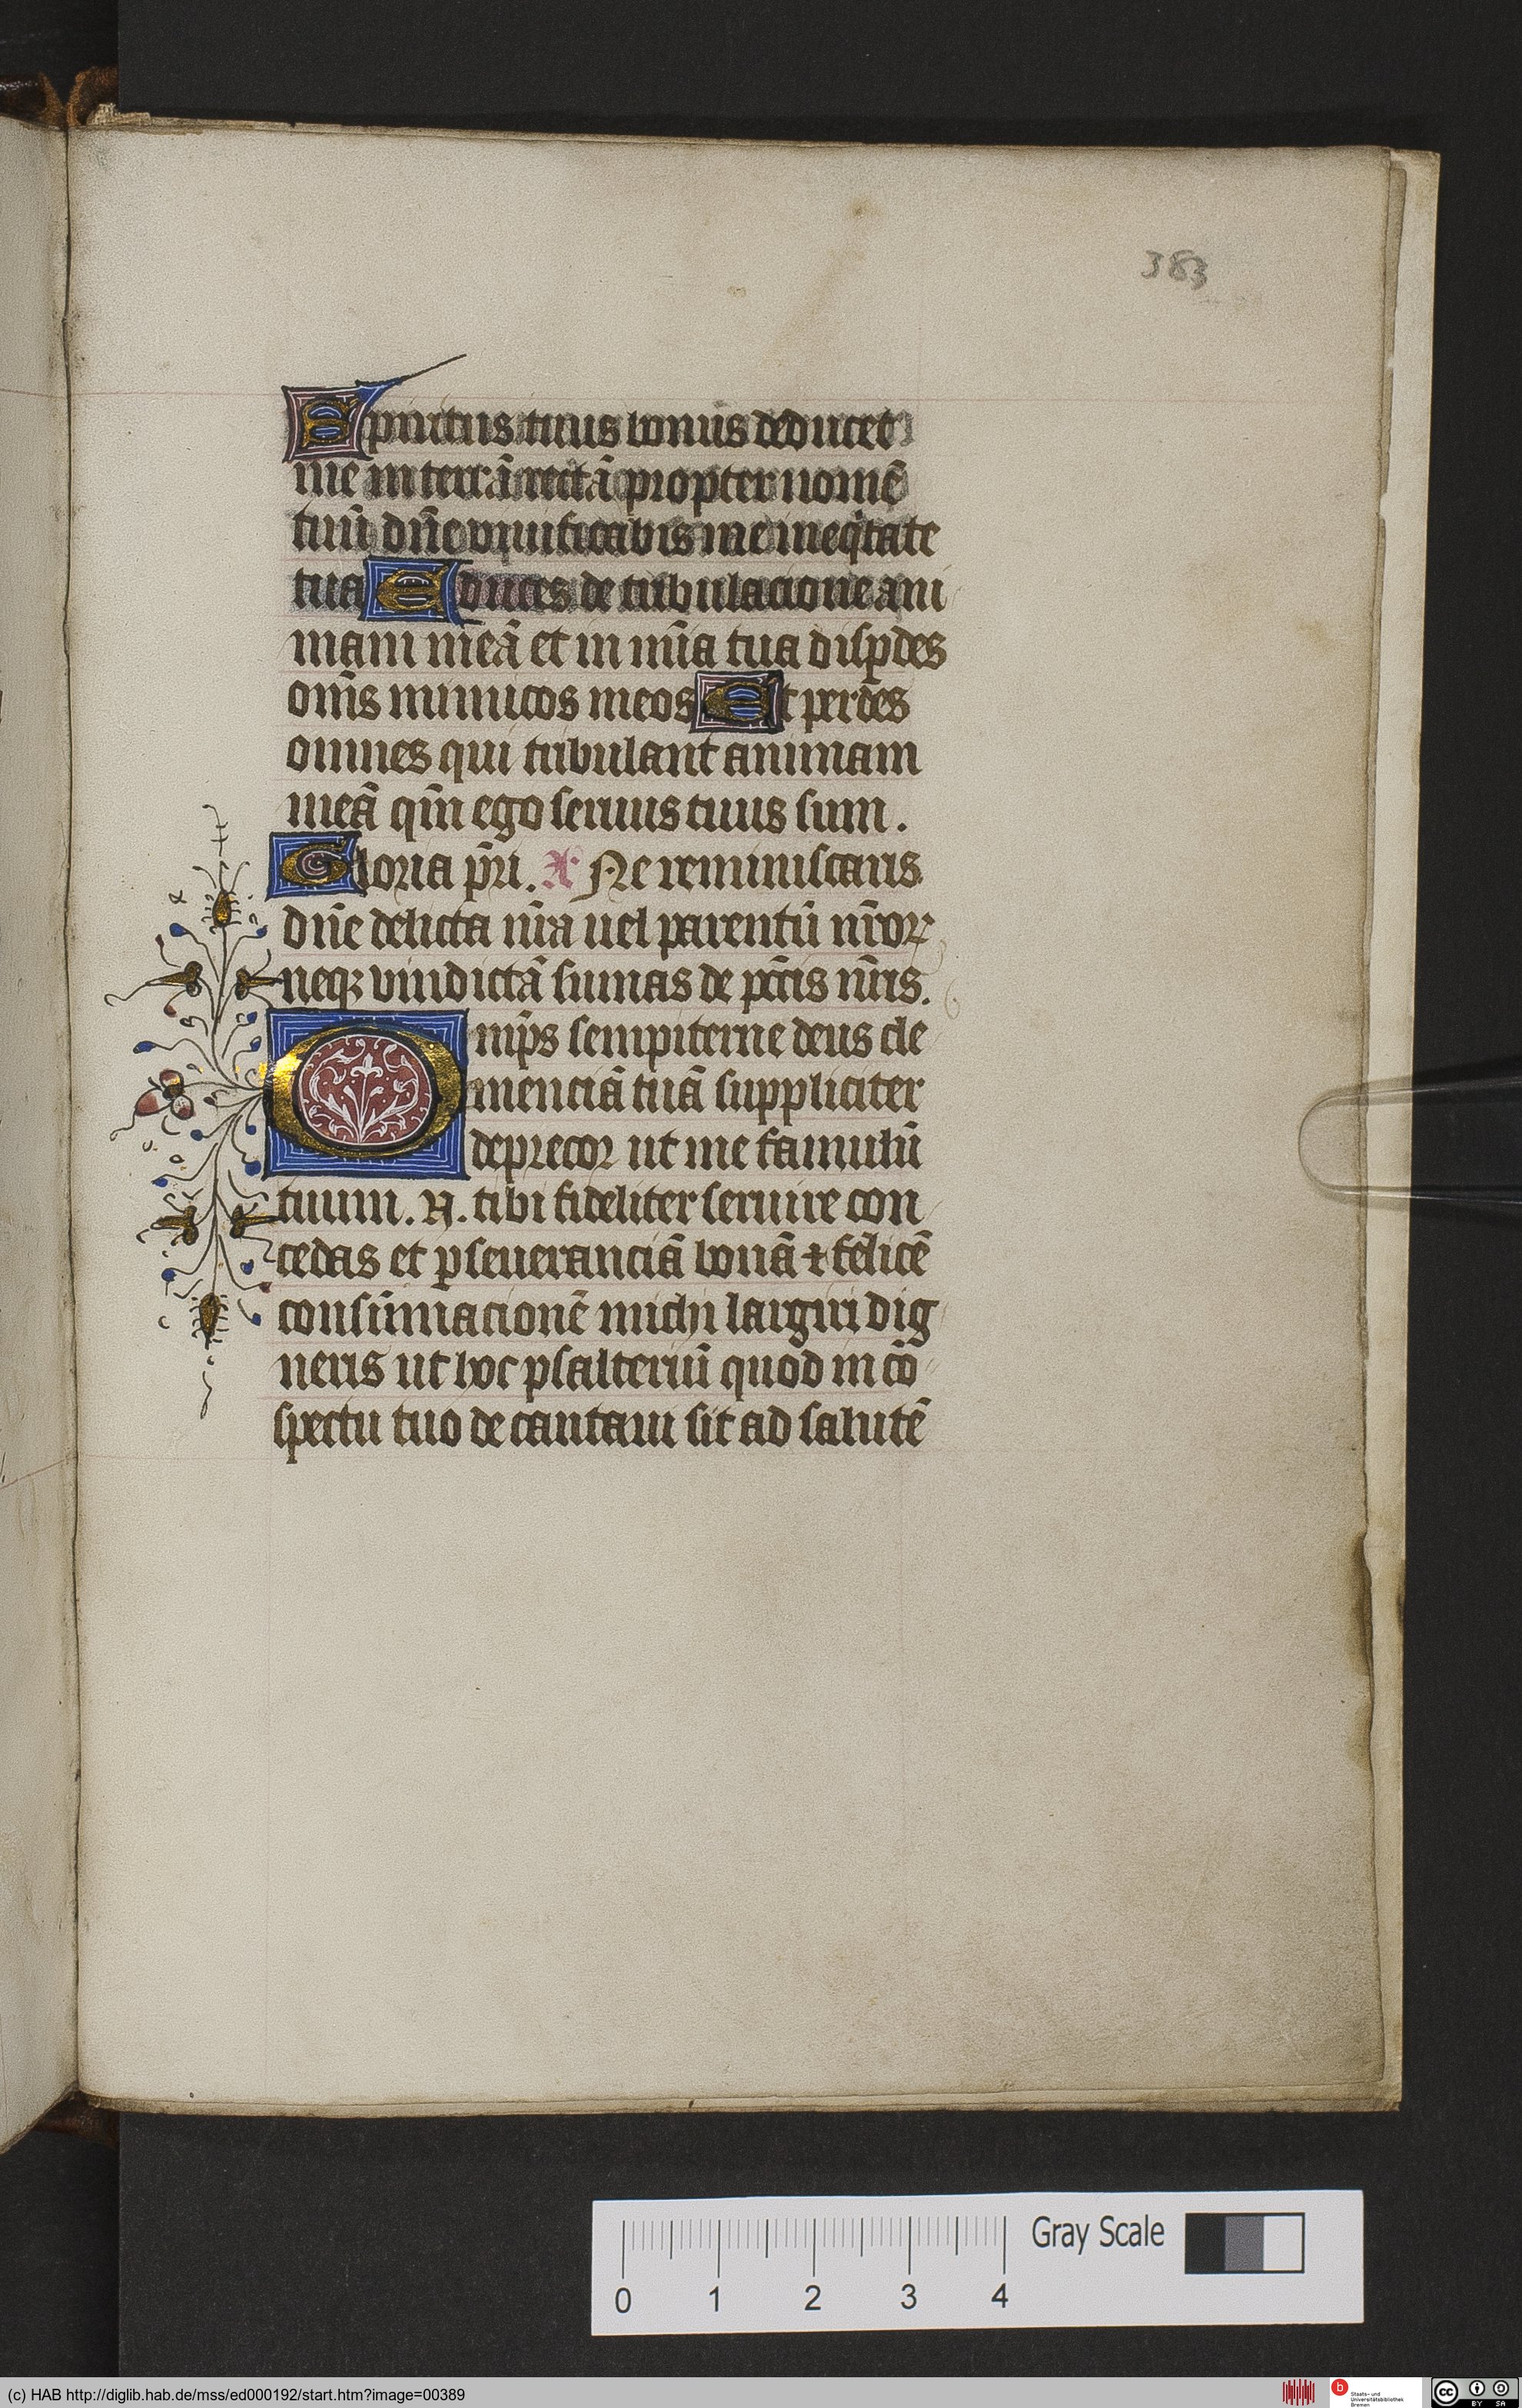 383
Spiritus tuus bonus deducet
me in terrā rectā propter nomē
tuū dn̄e viuificabis me in eq̇tate
tua Educes de tribulacione ani
mam meā et in mīa tua dispdes
om̄s inimicos meos Et perdes
omnes qui tribulant animam
meā qm̄ ego seruus tuus sum.
Gloria pr̄i. A Ne reminiscaris
dn̄e delicta nr̄a uel parentū nr̄oꝝ
neqꝫ vindictā sumas de pctīs nr̄is.
Omp̄s sempiterne deus cle
menciā tuā suppliciter
deprecor ut me famulū
tuum. N. tibi fideliter seruire con
cedas et ꝑseueranciā bonā ⁊ felicē
consūmacionē michi largiri dig
neris ut hoc psalteriū quod in cō
spectu tuo decantaui sit ad salutē
Gray Scale
0 1 2 3 4
(c) HAB http://diglib.hab.de/mss/ed000192/start.htm?image=00389
Staats- und
Universitätsbibliothek
Bremen
cc BY SA